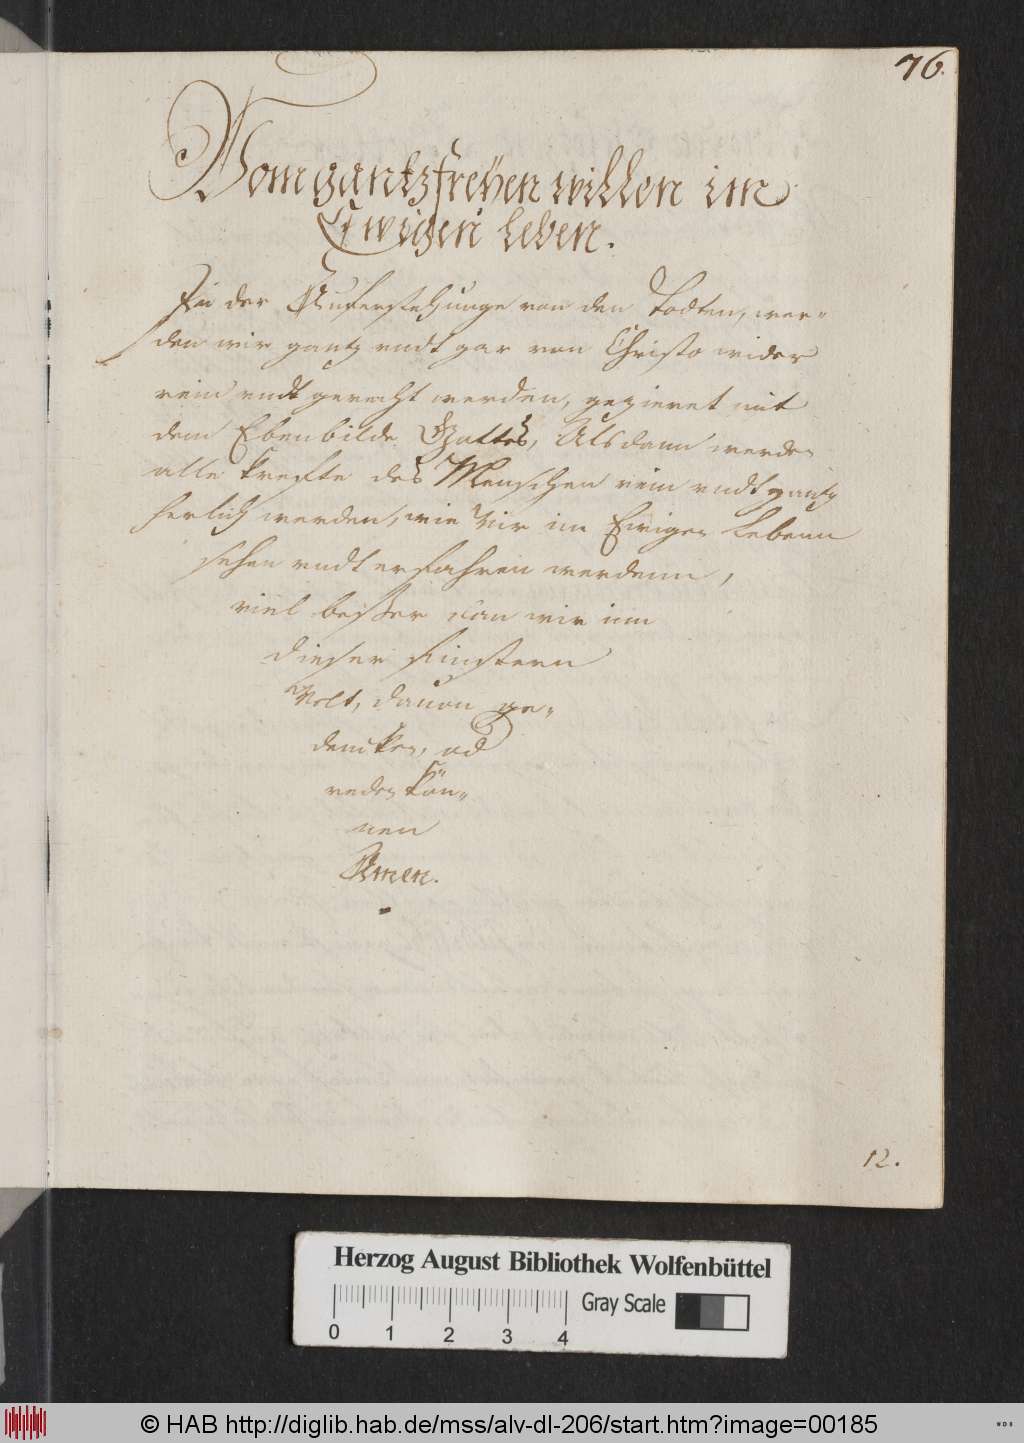 76.
Vom gantz freÿen willen im
Ewigen leben.
In der Aufersteḧunge von den Todten, wer=
den wir gantz vndt gar von Christo wider
rein vndt gerecht werden, gezieret mit
dem Ebenbilde Gottes, Alsdann werden
alle Krefte des Menschen rein vndt gantz
herlich werden, wie Wir im Ewigen Lebenn
sehen vndt erfahren werdenn,
viel besser dan wir inn
dieser finstern
Welt, dauon ge=
dencken, od
reden kön=
nen
Amen.
12.
Herzog August Bibliothek Wolfenbüttel
0 1 2 3 4
Gray Scale
© HAB http://diglib.hab.de/mss/alv-dl-206/start.htm?image=00185